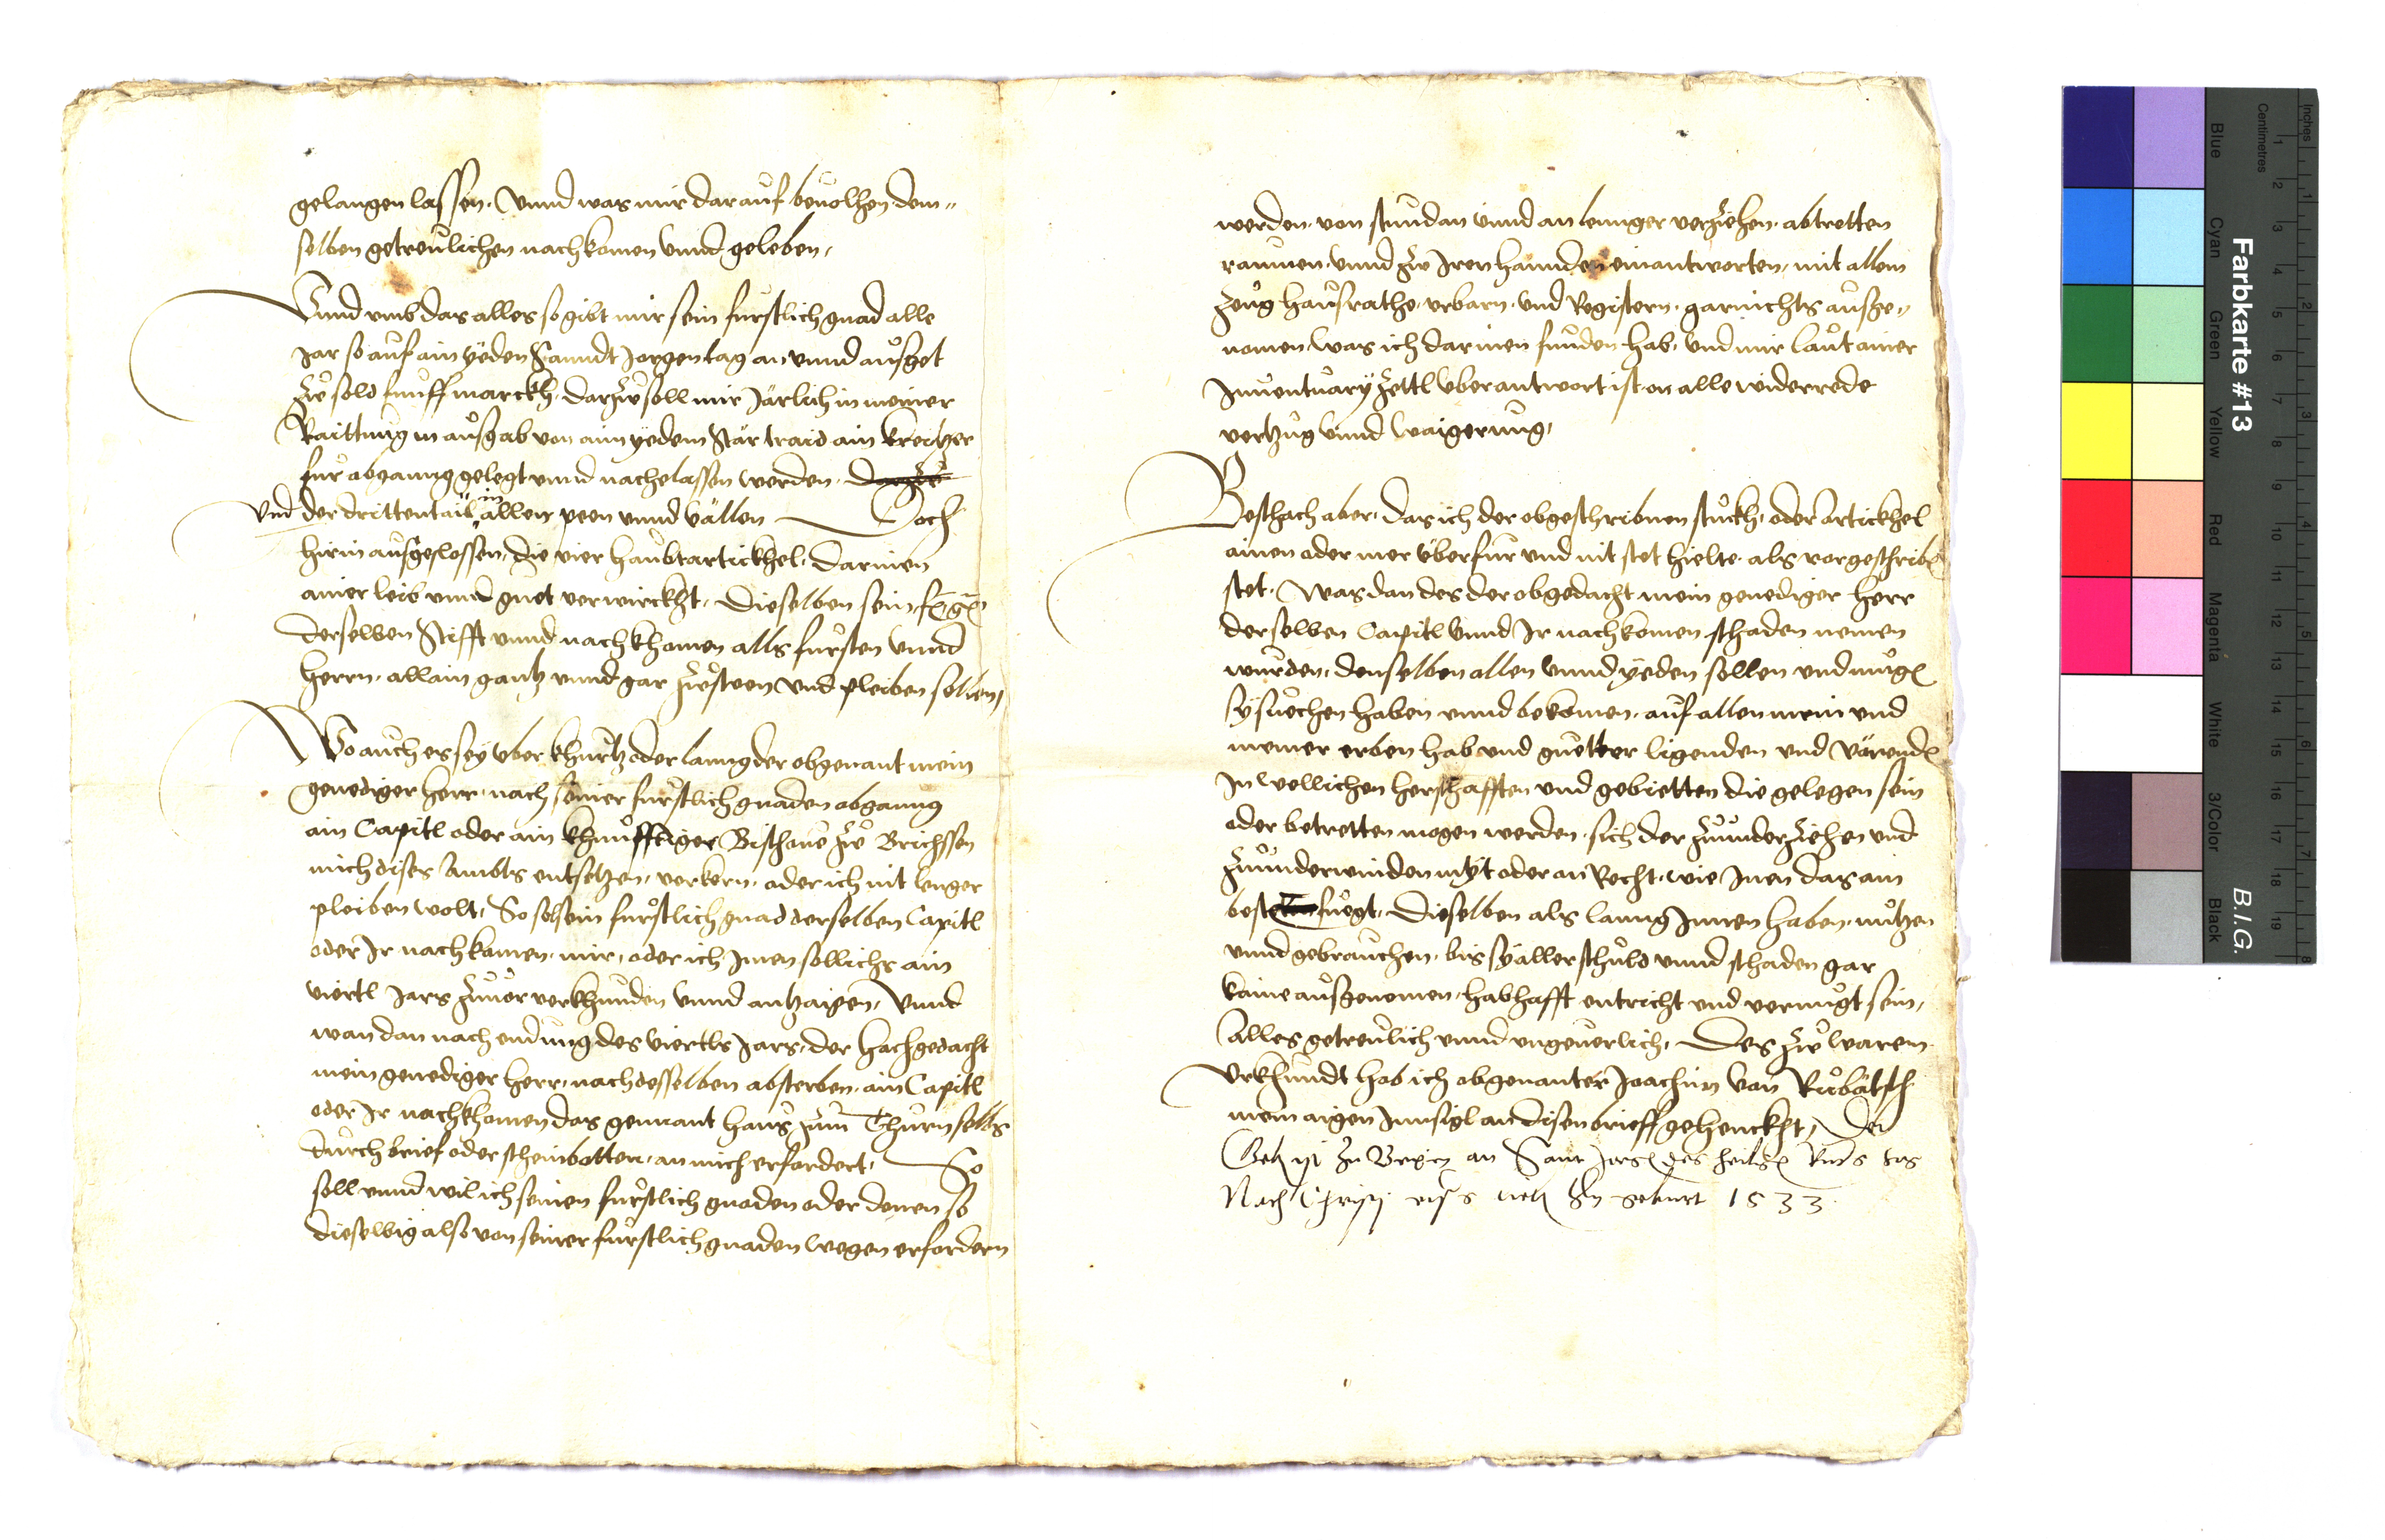 gelangen lassen. Vnnd was mir darauf beuolhen dem-
selben getreulichen nachkomen vnnd geleben,
Vnnd vmb das alles so gibt mir sein furstlich gnad alle
Jar so auf ain yeden Sanndt Jorgen tag an vnnd ausget
zw sold funff marckh. darzw soll mir Järlich in meiner
Raittung in ausgab von aim yedem Stär traid ain kreitzer
fur abganng gelegt vnnd nachgelassen werden. darzw
vnd der drittentail in allen peen vnnd vällen Doch
hirin ausgeslossen, die vier haubtartickhel, darinen
ainer leib vnnd guet verwirckht, Dieselben sein f. g.
derselben Stifft vnnd nachkhomen alls fursten vnnd
herrn, allain gantz vnnd gar zwsteen vnd pleiben sollen,
Wo auch es sey vber khurtz oder lanng der obgenant mein
genediger herr, nach seiner furstlich gnaden abganng
ain Capitl oder ain khunfftiger Bischoue zw Brichssen
mich dises Ambts entsetzen, verkern, oder ich nit lenger
pleiben wolt, So sol sein furstlich gnad derselben Capitl
oder Ir nachkomen, mir, oder ich Inen sollichs ain
viertl Jars zuuor verkhunden vnnd antzaigen, Vnnd
wan dan nach endung des viertls Jars, der hochgedacht
mein genediger herr, nach desselben absterben, ain Capitl
oder Ir nachkhomen das genant haus zum Thurn selbs
durch brief oder scheinbotten, an mich erfordert, So
soll vnnd wil ich seinen furstlich gnaden oder denen so
dieselbig also von seiner furstlich gnaden wegen erfordern
werden. von stundan vnnd an lennger verziehen. abtretten
raumen. vnnd zw Iren hannden einantworten, mit allem
zeug hausrathe, vrbarn, vnd Registern. garnichts ausge-
nomen. was ich darinen funden hab, vnd mir laut ainer
Inuentuary zettl vberantwort ist, on alle widerrede
vertzug vnnd waigerung,
Beschach aber, das ich der obgeschribnen stuckh, oder Artickhel
ainen oder mer vberfur vnd nit stet hielte. als vorgeschriben
stet, Was dan des der obgedacht mein genediger herr
derselben Capitl vnnd Ir nachkomen schaden nemen
wurden, denselben allen vnnd yeden sollen vnd mugen
sy suechen haben vnnd bekomen, auf allen mein vnd
meiner erben hab vnd guetter ligenden vnd varenden
In wellichen herschafften vnd gebietten die gelegen sein
oder betretten mogen werden, sich der zuunderziehen vnd
zuunderwinden myt oder an Recht, wie Inen das am
besten fuegt, Dieselben als lanng Innen haben, nutzen
vnnd gebrauchen, bis sy aller schuld vnnd schaden gar
kaine ausgenomen, habhafft entricht vnd vernuegt sein,
Alles getreulich vnnd vngeuerlich, Des zw waren
Vrkhundt hab ich obgenanter Joachim von Rubätsch
mein aigen Innsigl an disen brieff gehenckht, Der
Geben ist zu Brixen an Sant Jorgen des heiligen
Nach Christi geburt 1533